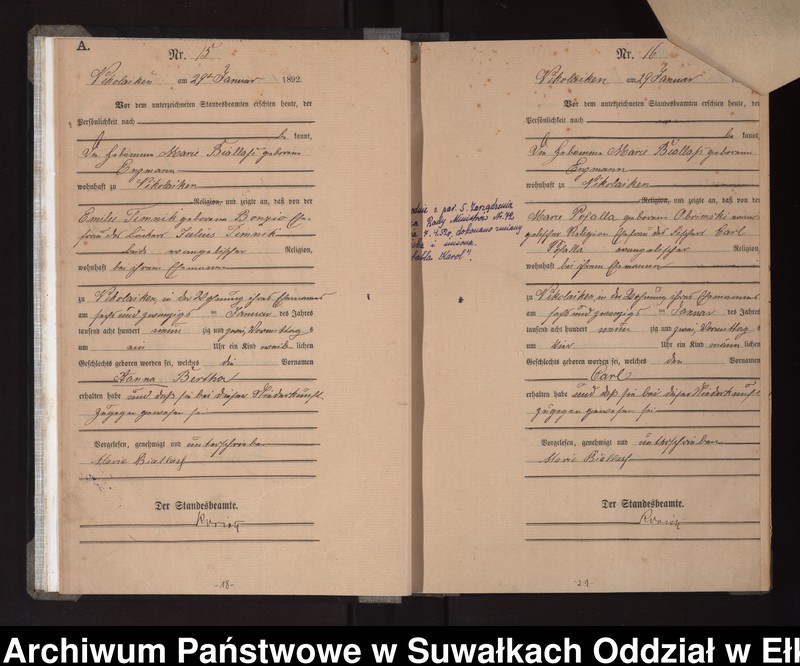 A.
Nr. 15
Nikolaiken am 29t Januar 1892.
Vor dem unterzeichneten Standesbeamten erschien heute, der
Persönlichkeit nach
be kannt,
Die Hebamme Marie Biallaß geborene
Engmann
wohnhaft zu Nikolaiken
Religion, und zeigte an, daß von der
geborenen Ehe-
frau des Julius
beide evangelischer Religion,
wohnhaft bei ihrem Ehemann
zu Nikolaiken, in der Wohnung ihres Ehemannes
am sechs und zwanzigs ten Januar des Jahres
tausend acht hundert neun zig und zwei, Vormittag s
um ein Uhr ein Kind weib- lichen
Geschlechts geboren worden sei, welches die Vornamen
Hanna Bertha
erhalten habe und daß sie bei dieser Niederkunft
zugegen gewesen sei
Vorgelesen, genehmigt und unterschrieben
Marie Biallaß
Der Standesbeamte.
-18-
Nr. 16
Nikolaiken am 29 Januar
Vor dem unterzeichneten Standesbeamten erschien heute, der
Persönlichkeit nach
be kannt,
Die Hebamme Marie Biallaß geborene
Engmann
wohnhaft zu Nikolaiken
Religion, und zeigte an, daß von der
Marie geborenen evan-
gelischer Religion Ehefrau des Fischers Carl
evangelischer Religion,
wohnhaft bei ihrem Ehemann
zu Nikolaiken, in der Wohnung ihres Ehemannes
am sechs und zwanzigs ten Januar des Jahres
tausend acht hundert neun zig und zwei, Vormittag s
um vier Uhr ein Kind männ lichen
Geschlechts geboren worden sei, welches den Vornamen
Carl
erhalten habe und daß sie bei dieser Niederkunft
zugegen gewesen sei
Vorgelesen, genehmigt und unterschrieben
Marie Biallaß
Der Standesbeamte.
-21-
z par. 5. Zarządzenia
Rady Ministrów Nr. 72
dokonano zmiany
i imiona
Karol".
Archiwum Państwowe w Suwałkach Oddział w Eł